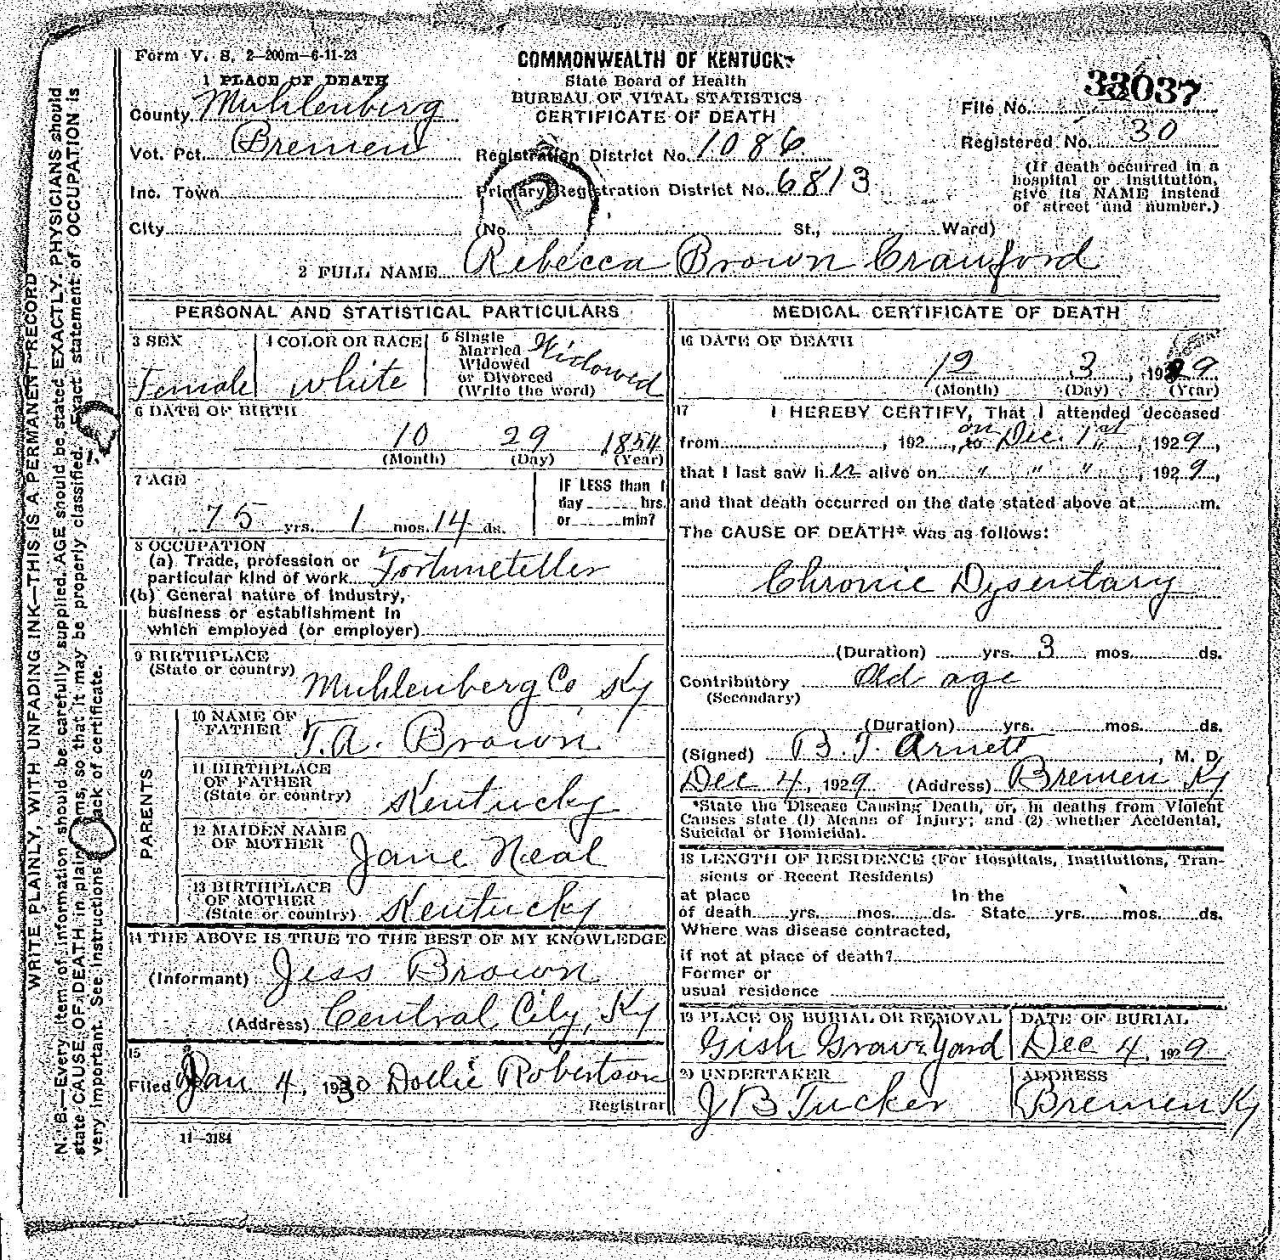 Form V. S. 2—200m—6-11-23
COMMONWEALTH OF KENTUCKY
State Board of Health
BUREAU OF VITAL STATISTICS
CERTIFICATE OF DEATH
File No. 33037
Registered No. 30
(If death occurred in a
hospital or institution,
give its NAME instead
of street and number.)
1 PLACE OF DEATH
County Muhlenberg
Vot. Pct. Bremen
Registration District No. 1086
Inc. Town
Primary Registration District No. 6813
City
(No. St., Ward)
2 FULL NAME Rebecca Brown Crawford
PERSONAL AND STATISTICAL PARTICULARS
3 SEX
Female
4 COLOR OR RACE
white
5 Single
Married
Widowed
or Divorced
(Write the word)
Widowed
6 DATE OF BIRTH
10 29 1854
(Month) (Day) (Year)
7 AGE
75 yrs. 1 mos. 14 ds.
IF LESS than 1
day hrs.
or min?
8 OCCUPATION
(a) Trade, profession or
particular kind of work Fortuneteller
(b) General nature of industry,
business or establishment in
which employed (or employer)
9 BIRTHPLACE
(State or country)
Muhlenberg Co, Ky
PARENTS
10 NAME OF
FATHER T.A. Brown
11 BIRTHPLACE
OF FATHER
(State or country) Kentucky
12 MAIDEN NAME
OF MOTHER Jane Neal
13 BIRTHPLACE
OF MOTHER
(State or country) Kentucky
14 THE ABOVE IS TRUE TO THE BEST OF MY KNOWLEDGE
(Informant) Jess Brown
(Address) Central City, Ky
15
Filed Jan 4, 1930 Dollie Robertson
Registrar
11—3184
MEDICAL CERTIFICATE OF DEATH
16 DATE OF DEATH
12 3, 1929
(Month) (Day) (Year)
17 I HEREBY CERTIFY, That I attended deceased
from , 192 , to on Dec. 1st, 1929,
that I last saw her alive on " " ", 1929,
and that death occurred on the date stated above at m.
The CAUSE OF DEATH* was as follows:
Chronic Dysentary
(Duration) yrs. 3 mos. ds.
Contributory Old age
(Secondary)
(Duration) yrs. mos. ds.
(Signed) B. T. Arnett, M. D.
Dec 4, 1929 (Address) Bremen Ky
*State the Disease Causing Death, or, in deaths from Violent
Causes state (1) Means of Injury; and (2) whether Accidental,
Suicidal or Homicidal.
18 LENGTH OF RESIDENCE (For Hospitals, Institutions, Tran-
sients or Recent Residents)
at place In the
of death yrs. mos. ds. State yrs. mos. ds.
Where was disease contracted,
if not at place of death?
Former or
usual residence
19 PLACE OF BURIAL OR REMOVAL
Gish Graveyard
DATE OF BURIAL
Dec 4, 1929
20 UNDERTAKER
J B Tucker
ADDRESS
Bremen Ky
WRITE PLAINLY, WITH UNFADING INK—THIS IS A PERMANENT RECORD
N. B.—Every item of information should be carefully supplied. AGE should be stated EXACTLY. PHYSICIANS should
state CAUSE OF DEATH in plain terms, so that it may be properly classified. Exact statement of OCCUPATION is
very important. See instructions back of certificate.